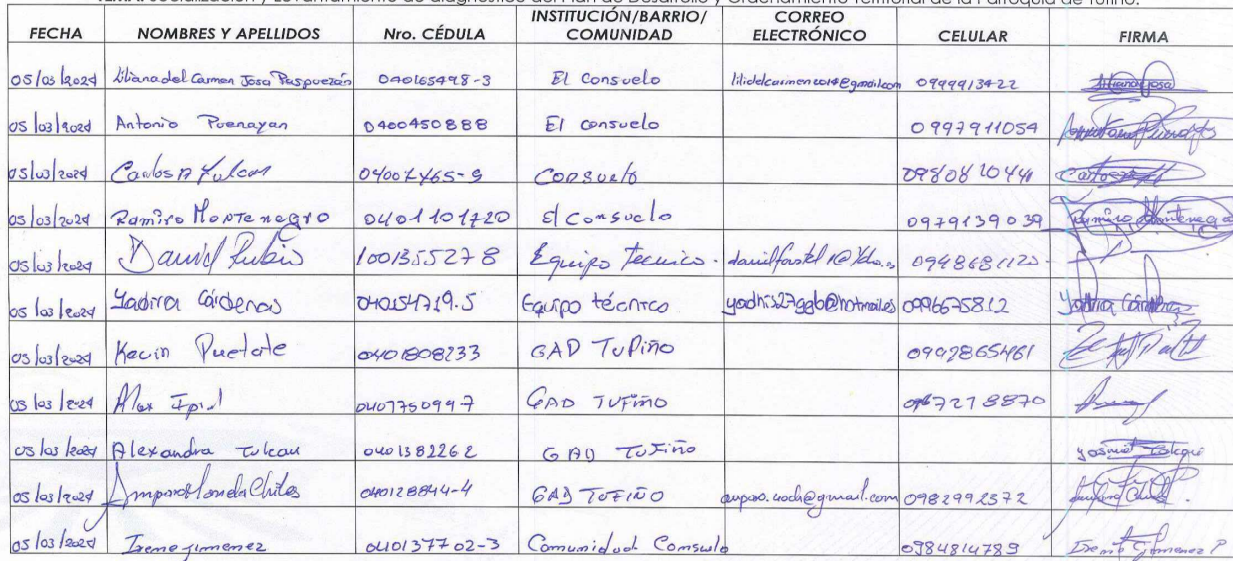 TEMA: Socialización y Levantamiento de diagnóstico del Plan de Desarrollo y Ordenamiento Territorial de la Parroquia de Tufiño.
FECHA NOMBRES Y APELLIDOS Nro. CÉDULA INSTITUCIÓN/BARRIO/COMUNIDAD CORREO ELECTRÓNICO CELULAR FIRMA
05/03/2024 Liliana del Carmen Josa Paspuezán 040165498-3 El Consuelo 0999913422 Liliana Josa
05/03/2024 Antonio Puenayan 0400450888 El consuelo 0997911054
05/03/2024 Carlos A Tulcan Consuelo
05/03/2024 Ramiro Montenegro 0401101720 El Consuelo 0979139039 Ramiro Montenegro
05/03/2024 David Rubio 1001355278 Equipo Tecnico.
05/03/2024 Yadira Cárdenas 040154719.5 Equipo técnico 0996675812 Yadira Cárdenas
05/03/2024 Kevin Puetate 0401808233 GAD Tufiño
05/03/2024 Alex 0401750997 GAD TUFIÑO
05/03/2024 Alexandra Tulcan 0401382262 GAD Tufiño
05/03/2024 040128844-4 GAD TUFIÑO 0982992572
05/03/2024 Irene Jimenez 040137702-3 Comunidad Consulo 0984814789 Irene Jimenez P